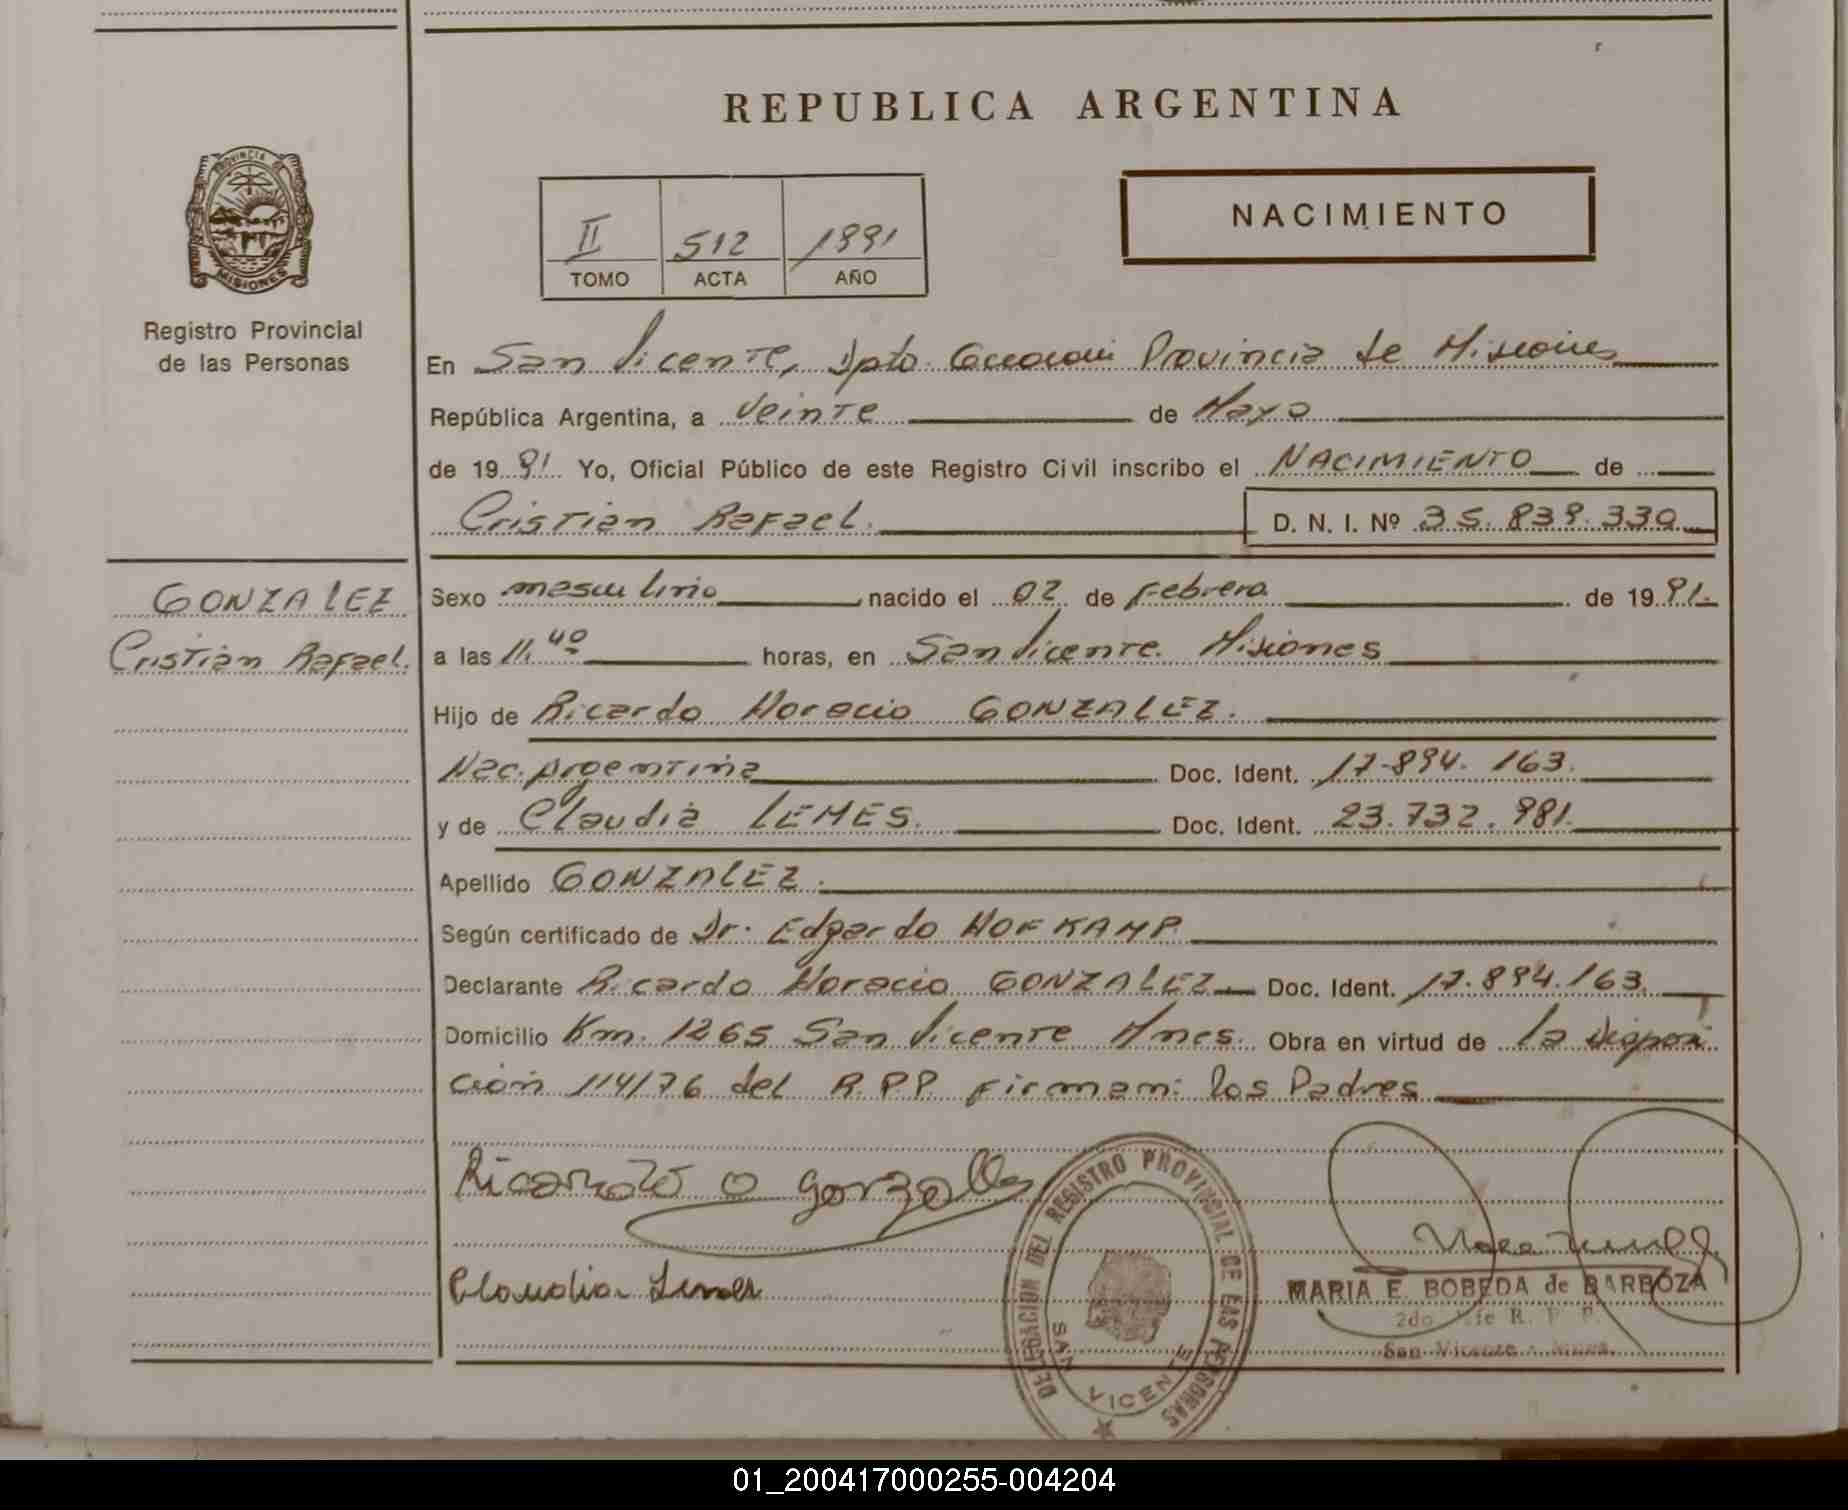 REPUBLICA ARGENTINA
PROVINCIA DE
MISIONES
Registro Provincial
de las Personas
II 512 1991
TOMO ACTA AÑO
NACIMIENTO
En San Vicente, Dpto. Guaraní Provincia de Misiones
República Argentina, a Veinte de Mayo
de 1991. Yo, Oficial Público de este Registro Civil inscribo el NACIMIENTO de
Cristian Rafael. D. N. I. Nº 35.839.330
GONZALEZ
Cristian Rafael.
Sexo masculino nacido el 02 de Febrero de 1991.
a las 11.40 horas, en San Vicente. Misiones
Hijo de Ricardo Horacio GONZALEZ.
Nac. Argentina Doc. Ident. 17.894.163.
y de Claudia LEMES. Doc. Ident. 23.732.981.
Apellido GONZALEZ.
Según certificado de Dr. Edgardo HOFKAMP
Declarante Ricardo Horacio GONZALEZ Doc. Ident. 17.894.163.
Domicilio Km. 1265 San Vicente Mnes. Obra en virtud de la disposi
ción 114/76 del R.P.P. Firman: los Padres
Ricardo O Gonzalez
Claudia Lemes
DELEGACION DEL REGISTRO PROVINCIAL DE LAS PERSONAS
SAN VICENTE
MARIA E. BOBEDA de BARBOZA
2do Jefe R. P. P.
San Vicente - Mnes.
01_200417000255-004204